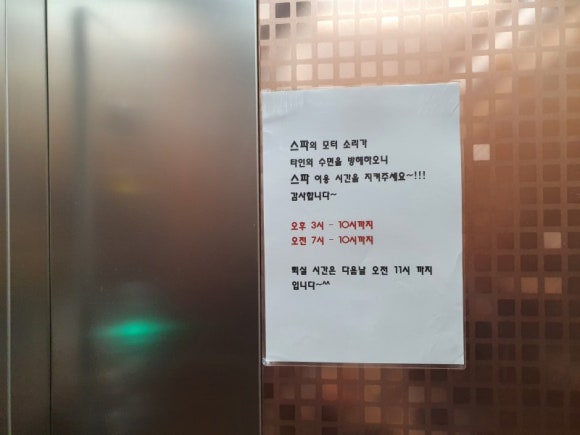 스파의 모터 소리가
타인의 수면을 방해하오니
스파 이용 시간을 지켜주세요~!!!
감사합니다~
오후 3시 - 10시까지
오전 7시 - 10시까지
퇴실 시간은 다음날 오전 11시 까지
입니다~^^